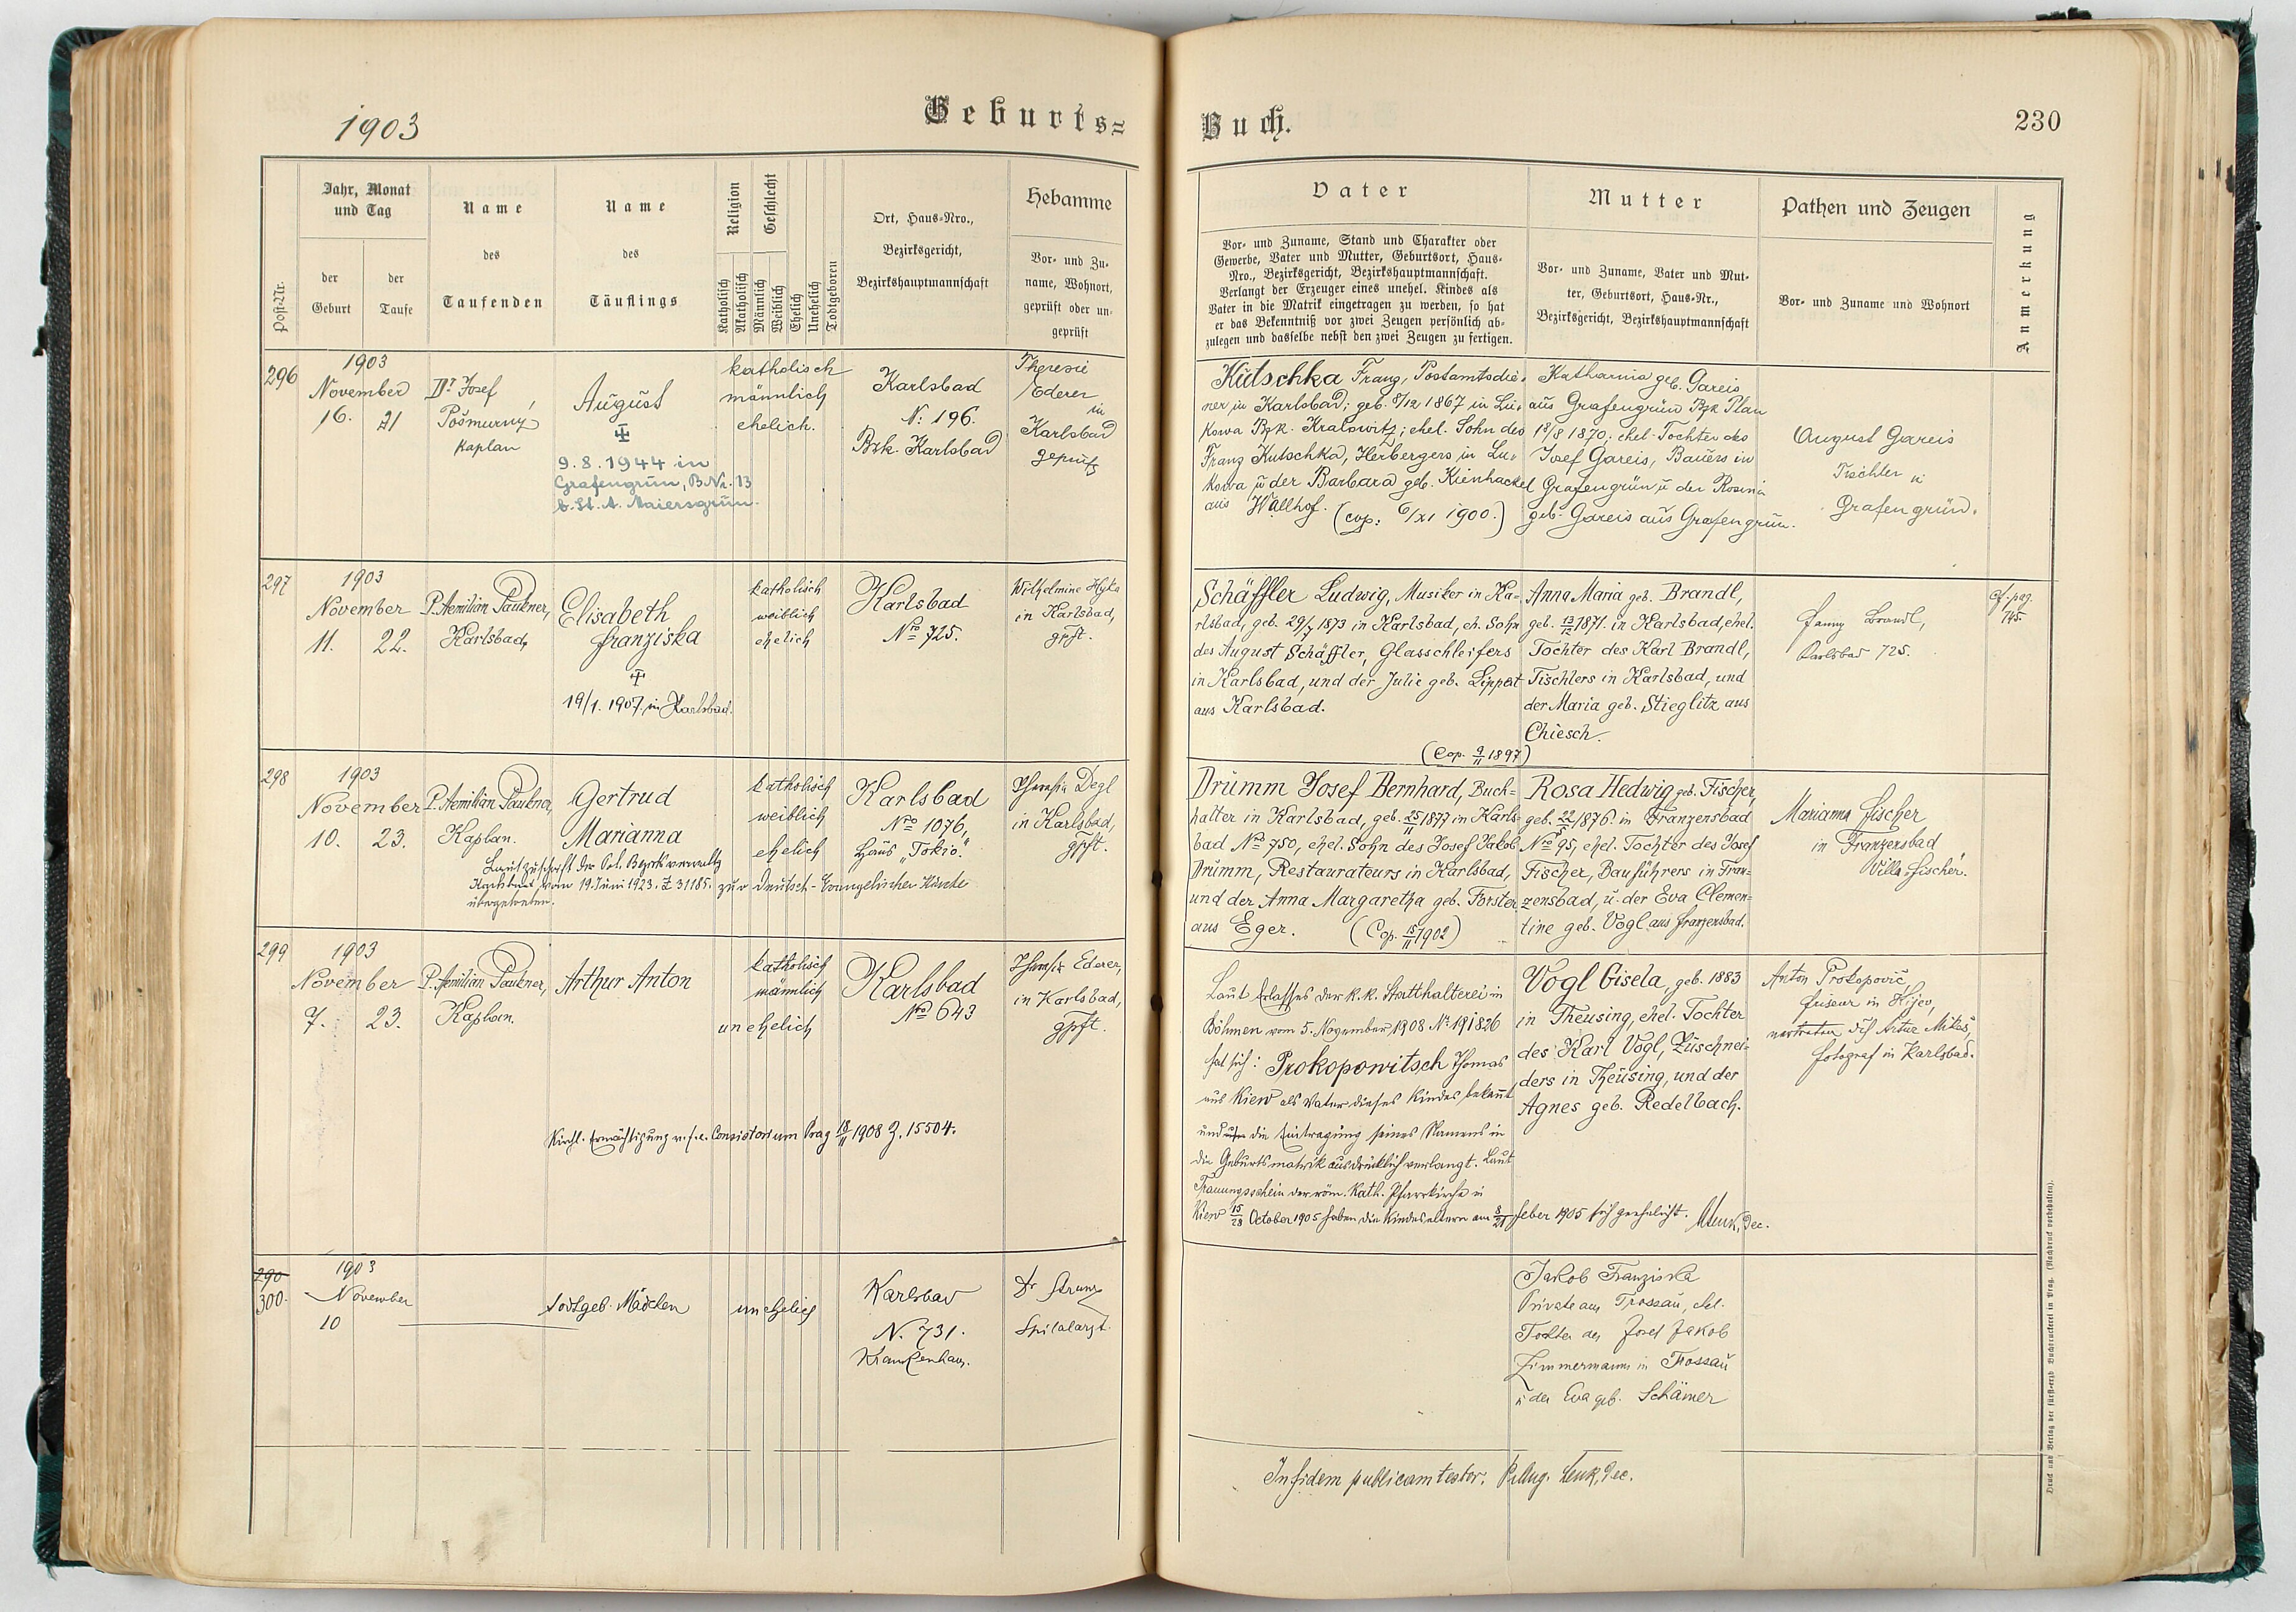 1903
Geburts=
Buch.
230
Post-Nr.
Jahr, Monat
und Tag
der
Geburt
der
Taufe
Name
des
Taufenden
Name
des
Täuflings
Religion
Geschlecht
Katholisch
Akatholisch
Männlich
Weiblich
Ehelich
Unehelich
Todtgeboren
Ort, Haus-Nro.,
Bezirksgericht,
Bezirkshauptmannschaft
Hebamme
Vor- und Zu-
name, Wohnort,
geprüft oder un-
geprüft
Vater
Vor- und Zuname, Stand und Charakter oder
Gewerbe, Vater und Mutter, Geburtsort, Haus-
Nro., Bezirksgericht, Bezirkshauptmannschaft.
Verlangt der Erzeuger eines unehel. Kindes als
Vater in die Matrik eingetragen zu werden, so hat
er das Bekenntniß vor zwei Zeugen persönlich ab-
zulegen und dasselbe nebst den zwei Zeugen zu fertigen.
Mutter
Vor- und Zuname, Vater und Mut-
ter, Geburtsort, Haus-Nr.,
Bezirksgericht, Bezirkshauptmannschaft
Pathen und Zeugen
Vor- und Zuname und Wohnort
Anmerkung
296
1903
November
16. 21
Dr Josef
Pošmurný
Kaplan
August
9.8.1944 in
Grafengrün, B.Nr. 13
b. St. A. Maiersgrün.
katholisch
männlich
ehelich.
Karlsbad
N: 196.
Bzk. Karlsbad
Theresie
Ederer
in
Karlsbad
geprüft
Kutschka Franz, Postamtsdie-
ner in Karlsbad; geb. 8/12 1867 in Lu-
kowa Bzk. Kralowitz; ehel. Sohn des
Franz Kutschka, Herbergers in Lu-
kowa u der Barbara geb. Kienhackel
aus Wallhof. (cop: 6/XI 1900.)
Katharina geb. Gareis
aus Grafengrün Bzk Plan
18/8 1870; ehel. Tochter des
Josef Gareis, Bauers in
Grafengrün u der Rosina
geb. Gareis aus Grafengrün.
August Gareis
Tischler in
Grafengrün.
297
1903
November
11. 22.
P. Aemilian Paukner,
Karlsbad,
Elisabeth
Franziska
19/1. 1907. in Karlsbad.
katholisch
weiblich
ehelich
Karlsbad
Nro 725.
Wilhelmine Hyka
in Karlsbad,
gpft.
Schäffler Ludwig, Musiker in Ka-
rlsbad, geb. 29/7 1873 in Karlsbad, eh. Sohn
des August Schäffler, Glasschleifers
in Karlsbad, und der Julie geb. Lippert
aus Karlsbad.
(Cop. 9/11 1897)
Anna Maria geb. Brandl,
geb. 13/12 1871. in Karlsbad, ehel.
Tochter des Karl Brandl,
Tischlers in Karlsbad, und
der Maria geb. Stieglitz aus
Chiesch.
Fanny Brandl,
Karlsbad 725.
cf. pag.
145.
298
1903
November
10. 23.
P. Aemilian Paukner,
Kaplan.
Gertrud
Marianna
Laut Zuschrift der Pol. Bezirksverwaltg
Karlsbad vom 19. Juni 1923. Z 31185. zur Deutsch-Evangelischen Kirche
übergetreten.
katholisch
weiblich
ehelich
Karlsbad
Nro 1076,
Haus „Tokio."
Theresia Degl
in Karlsbad,
gpft.
Drumm Josef Bernhard, Buch-
halter in Karlsbad, geb. 25/11 1877 in Karls-
bad Nro 750, ehel. Sohn des Josef Jakob
Drumm, Restaurateurs in Karlsbad,
und der Anna Margaretha geb. Forster
aus Eger. (Cop. 15/11 1902)
Rosa Hedwig geb. Fischer,
geb. 22/5 1876. in Franzensbad
Nro 95, ehel. Tochter des Josef
Fischer, Bauführers in Fran-
zensbad, u. der Eva Clemen-
tine geb. Vogl aus Franzensbad.
Marianna Fischer
in Franzensbad
Villa „Fischer."
299
1903
November
7. 23.
P. Aemilian Paukner,
Kaplan.
Arthur Anton
Kirchl. Ermächtigung v. f. e. Consistorium Prag 18/11 1908 Z. 15504.
katholisch
männlich
unehelich
Karlsbad
Nro 643
Theresie Ederer,
in Karlsbad,
gpft.
Laut Erlasses der k.k. Statthalterei in
Böhmen vom 5. November 1908 No 191826
hat sich: Prokopowitsch Thomas
aus Kiew als Vater dieses Kindes bekannt
und die Eintragung seines Namens in
die Geburtsmatrik ausdrücklich verlangt. Laut
Trauungsschein der röm. Kath. Pfarrkirche in
Kiew 15/28 October 1905 haben die Kindeseltern am 8/21 feber 1905 sich geehelicht. Lenk, Dec.
Vogl Gisela, geb. 1883
in Theusing, ehel. Tochter
des Karl Vogl, Zuschnei-
ders in Theusing, und der
Agnes geb. Redelbach.
Anton Prokopovič
friseur in Kijev,
vertreten dch Artur Mikeš,
fotograf in Karlsbad.
290
300.
1903
November
10
todtgeb. Mädchen
unehelich
Karlsbad
N. 731.
Krankenhaus.
Dr. Strunz
Spitalarzt.
Jakob Franziska
Private aus Trossau, ehel.
Tochter des Josef Jakob
Zimmermanns in Trossau
u der Eva geb. Schämer
In fidem publicam testor: P. Aug. Lenk, Dec.
Druck und Verlag der fürst-erzb Buchdruckerei in Prag. (Nachdruck vorbehalten).